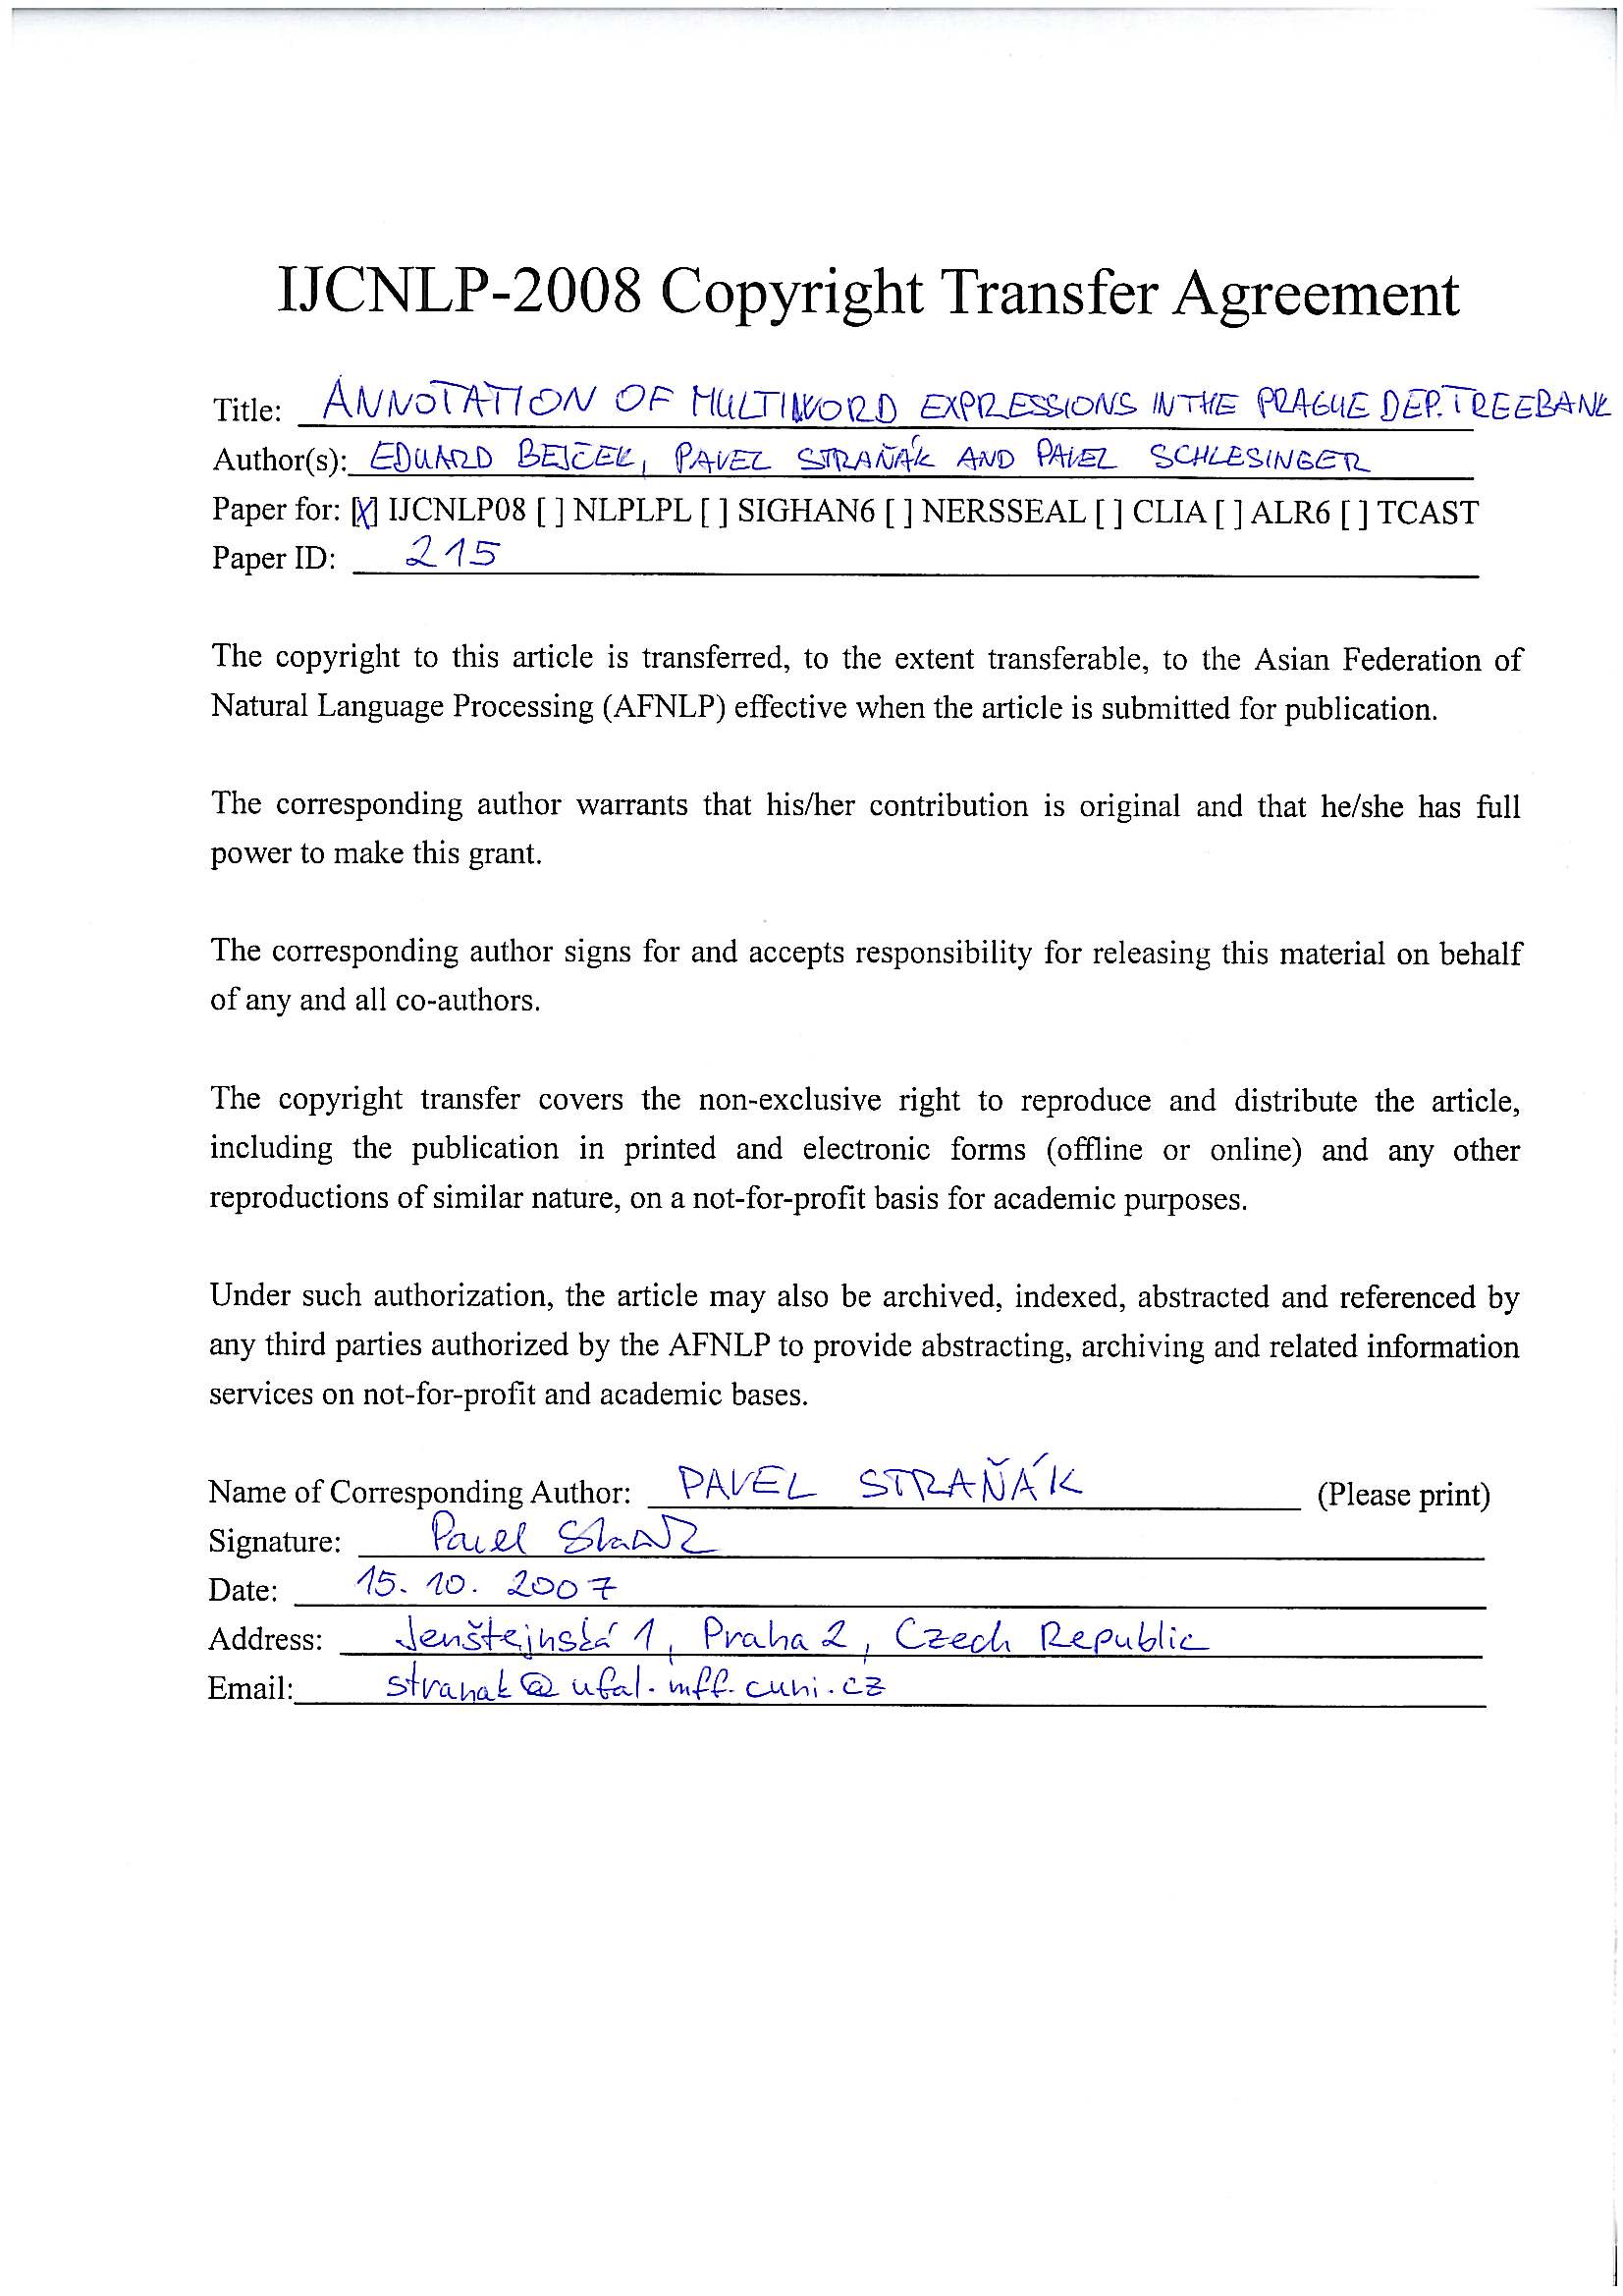 IJCNLP-2008 Copyright Transfer Agreement
Title: ANNOTATION OF MULTIWORD EXPRESSIONS IN THE PRAGUE DEP. TREEBANK
Author(s): EDUARD BEJČEK, PAVEL STRAŇÁK AND PAVEL SCHLESINGER
Paper for: [X] IJCNLP08 [ ] NLPLPL [ ] SIGHAN6 [ ] NERSSEAL [ ] CLIA [ ] ALR6 [ ] TCAST
Paper ID: 215
The copyright to this article is transferred, to the extent transferable, to the Asian Federation of
Natural Language Processing (AFNLP) effective when the article is submitted for publication.
The corresponding author warrants that his/her contribution is original and that he/she has full
power to make this grant.
The corresponding author signs for and accepts responsibility for releasing this material on behalf
of any and all co-authors.
The copyright transfer covers the non-exclusive right to reproduce and distribute the article,
including the publication in printed and electronic forms (offline or online) and any other
reproductions of similar nature, on a not-for-profit basis for academic purposes.
Under such authorization, the article may also be archived, indexed, abstracted and referenced by
any third parties authorized by the AFNLP to provide abstracting, archiving and related information
services on not-for-profit and academic bases.
Name of Corresponding Author: PAVEL STRAŇÁK (Please print)
Signature: Pavel
Date: 15. 10. 2007
Address: Jenštejnská 1, Praha 2, Czech Republic
Email: stranak@ufal.mff.cuni.cz